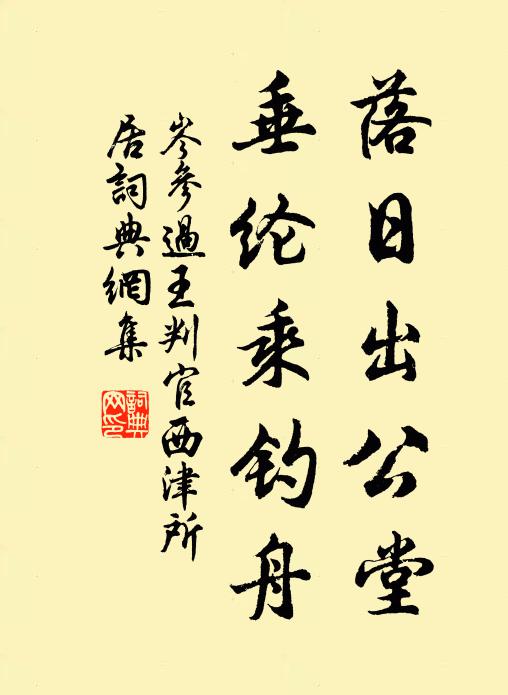 落日出公堂
垂纶乘钓舟
岑参過王判官西津所
居詞典網集
詞典
网印